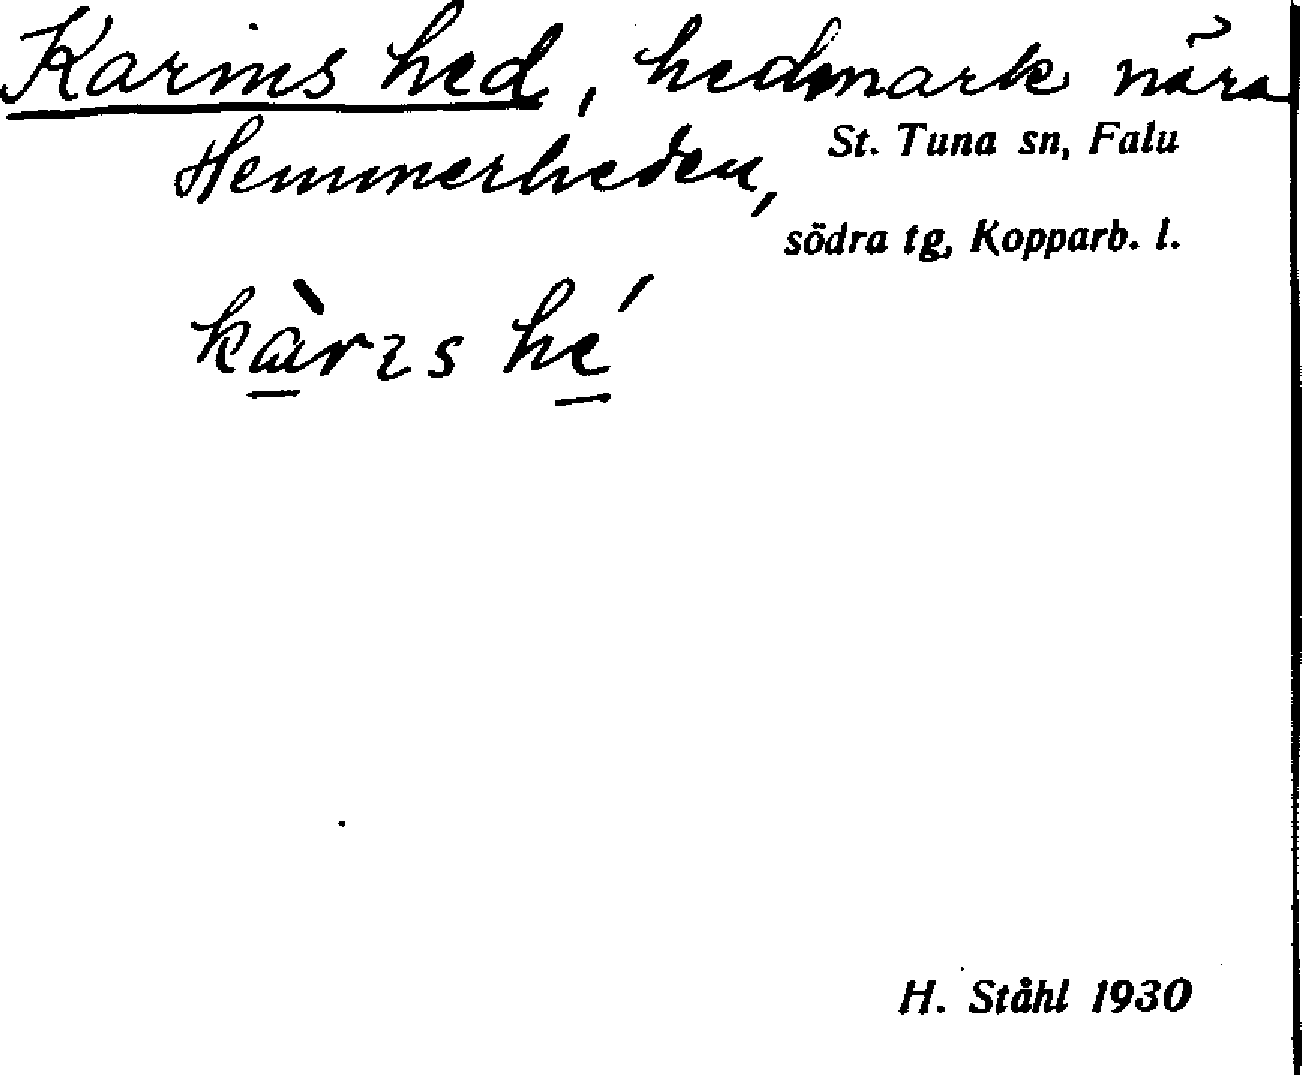 Karins hed, hedmark nära
St. Tuna sn, Falu
Hemmerheden,
södra tg, Kopparb. l.
kàrɪs hé
H. Ståhl 1930